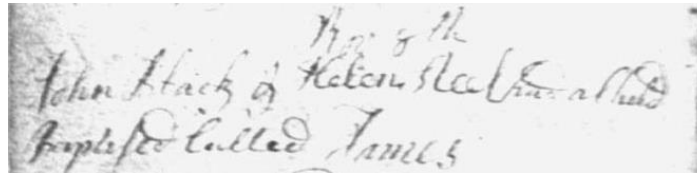 John Black & Helen Steel had a child
baptised called James